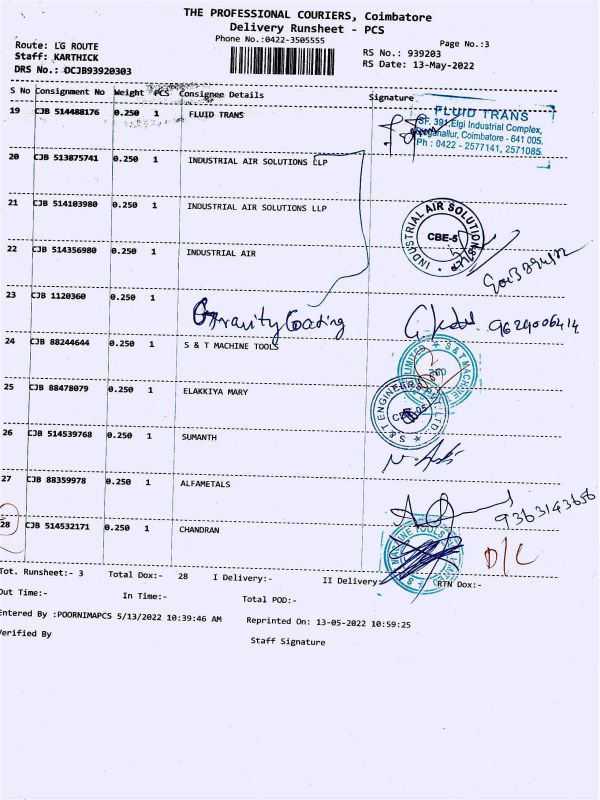 THE PROFESSIONAL COURIERS, Coimbatore
Delivery Runsheet - PCS
Phone No.:0422-3505555
Page No.:3
Route: LG ROUTE
RS No.: 939203
Staff: KARTHICK
RS Date: 13-May-2022
DRS No.: DCJB93920303
S No Consignment No Weight PCS Consignee Details Signature
19 CJB 514488176 0.250 1 FLUID TRANS
FLUID TRANS
SF. 391, Elgi Industrial Complex,
Coimbatore - 641 005.
Ph : 0422 - 2577141, 2571085
20 CJB 513875741 0.250 1 INDUSTRIAL AIR SOLUTIONS LLP
21 CJB 514103980 0.250 1 INDUSTRIAL AIR SOLUTIONS LLP
INDUSTRIAL AIR SOLUTIONS
CBE-5
22 CJB 514356980 0.250 1 INDUSTRIAL AIR
23 CJB 1120360 0.250 1 Gravity Coating 9629006414
24 CJB 88244644 0.250 1 S & T MACHINE TOOLS
S & T MACHINE
LIMITED
25 CJB 88478079 0.250 1 ELAKKIYA MARY
S & T ENGINEERS PVT. LTD
26 CJB 514539768 0.250 1 SUMANTH
27 CJB 88359978 0.250 1 ALFAMETALS
9363143656
28 CJB 514532171 0.250 1 CHANDRAN
MACHINE TOOLS
D/C
Tot. Runsheet:- 3 Total Dox:- 28 I Delivery:- II Delivery: RTN Dox:-
Out Time:- In Time:- Total POD:-
Entered By :POORNIMAPCS 5/13/2022 10:39:46 AM Reprinted On: 13-05-2022 10:59:25
Verified By Staff Signature